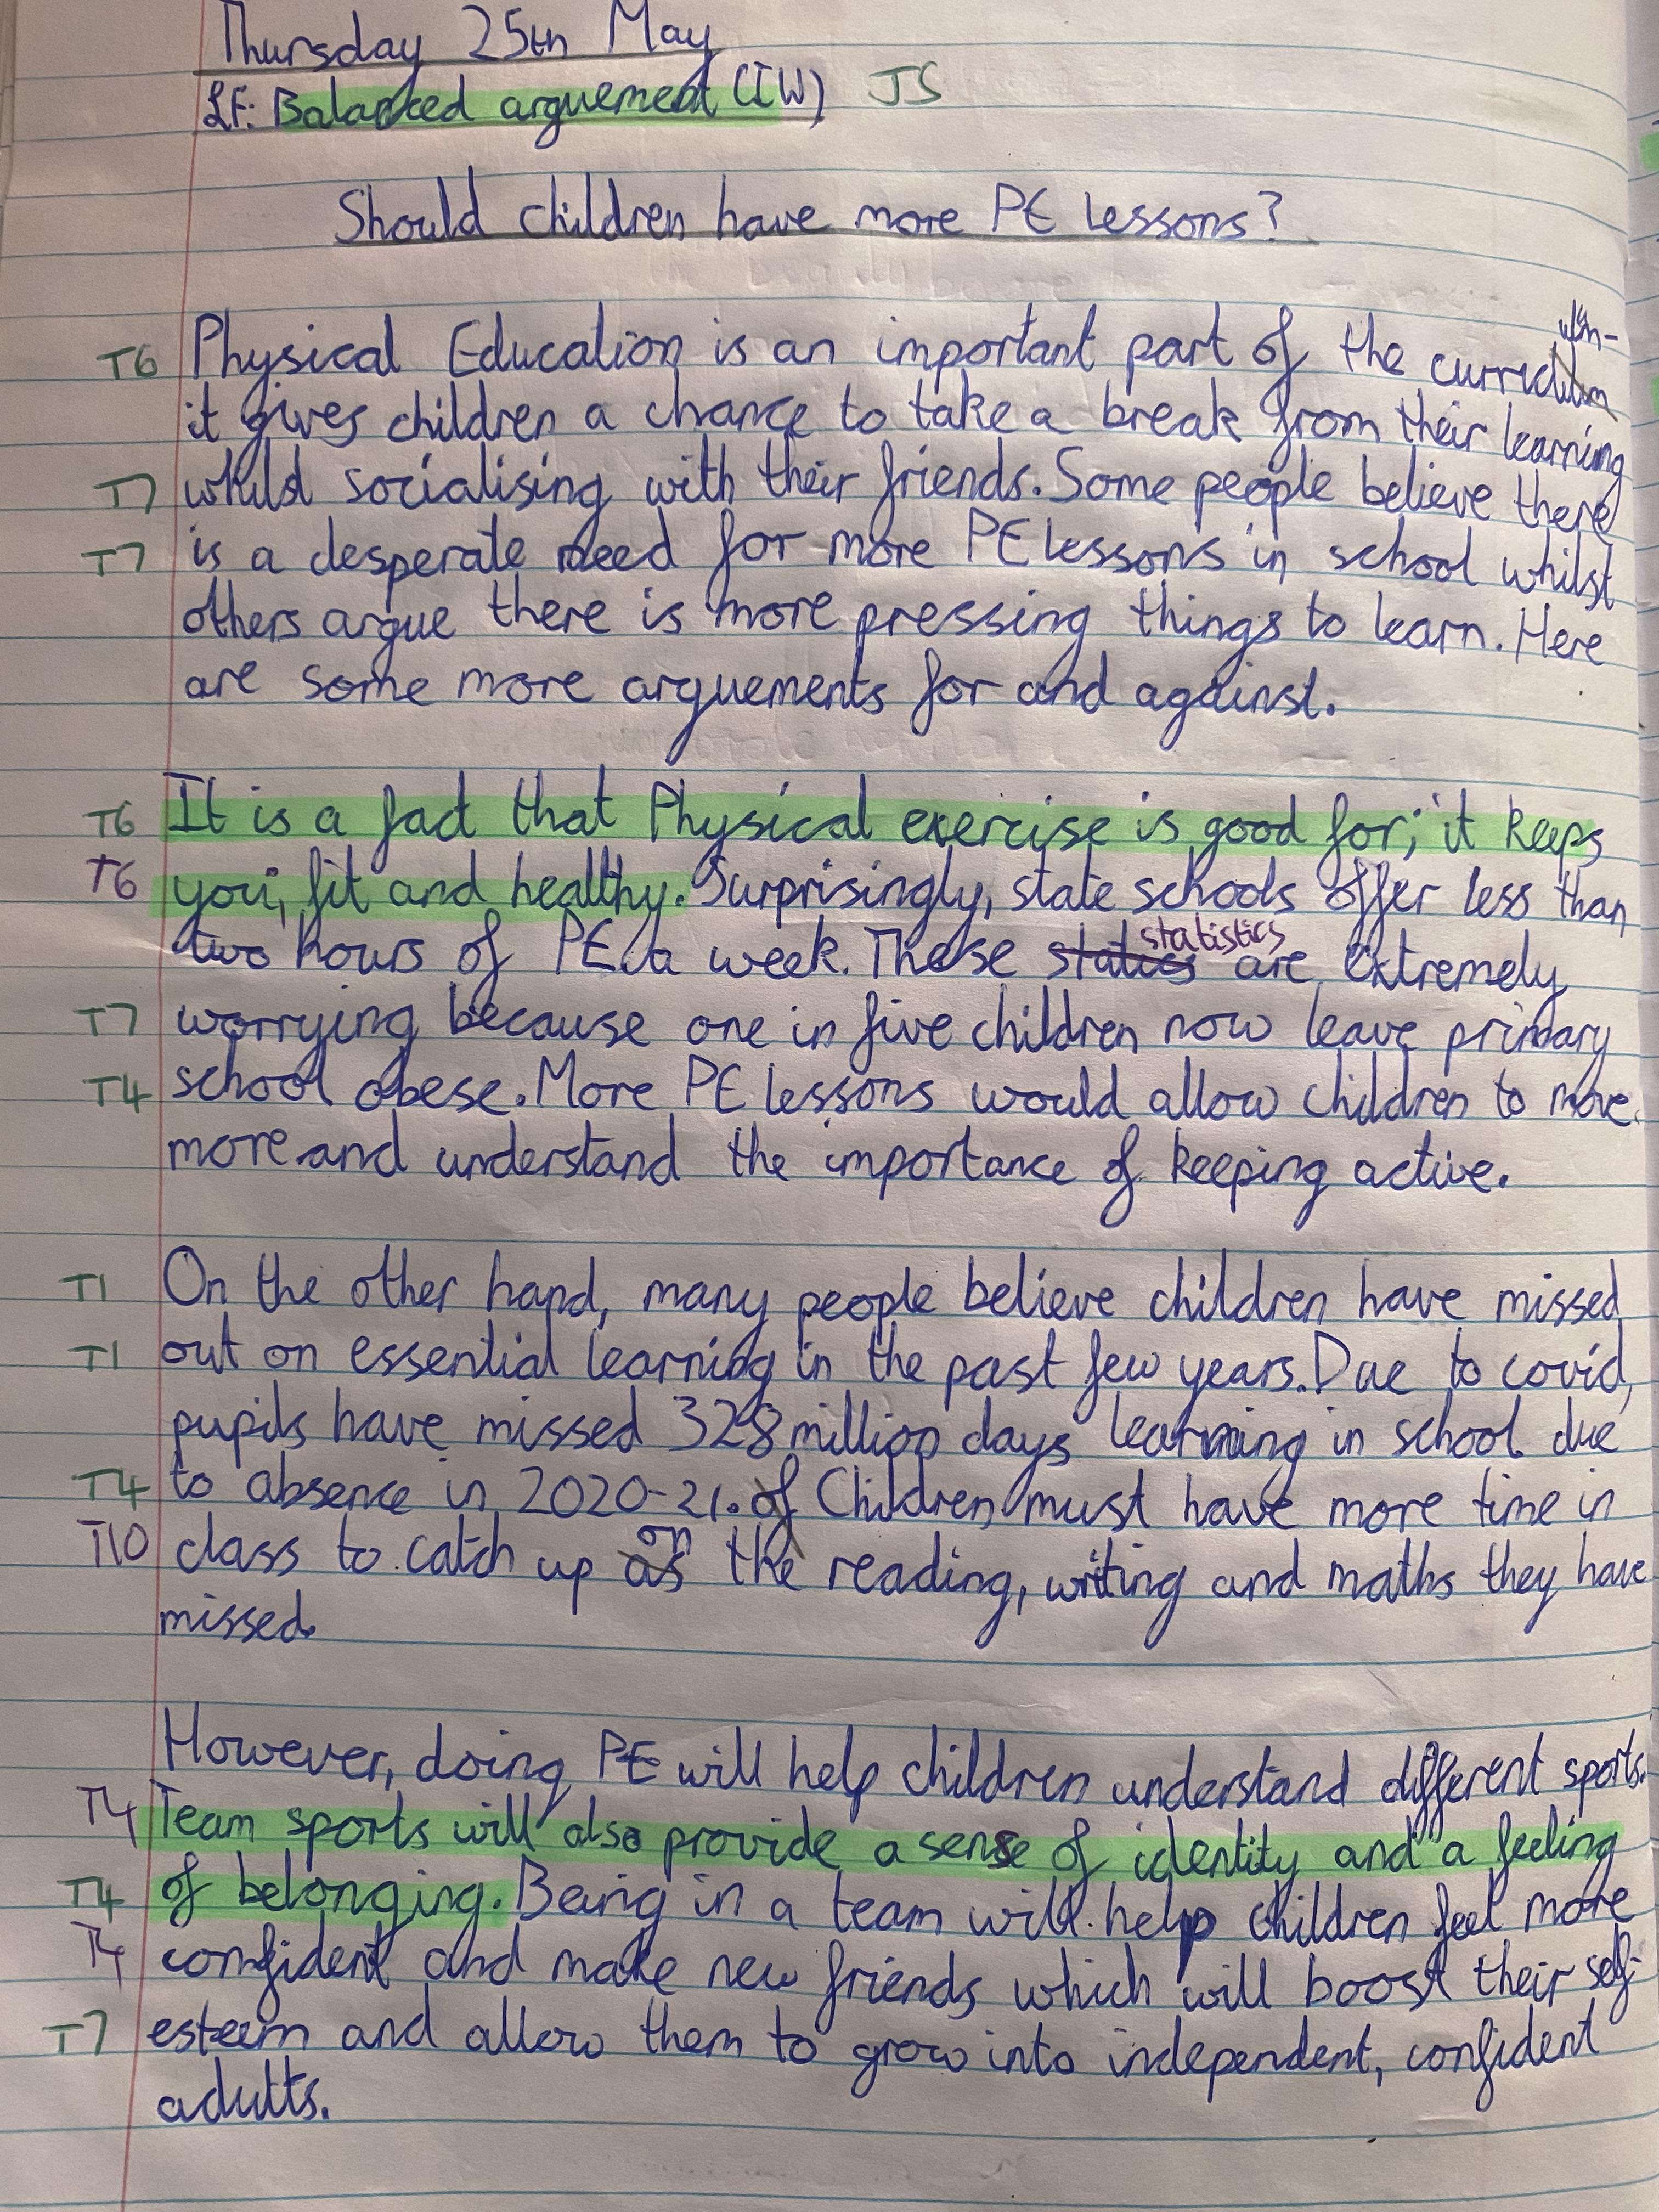 Thursday 25th May
LF: Balanced arguement (IW) JS
Should children have more PE lessons?
T6 Physical Education is an important part of the curriculum-
it gives children a chance to take a break from their learning
T7 whilst socialising with their friends. Some people believe there
T7 is a desperate need for more PE lessons in school whilst
others argue there is more pressing things to learn. Here
are some more arguements for and against.
T6 It is a fact that Physical exercise is good for; it keeps
T6 you, fit and healthy. Surprisingly, state schools offer less than
two hours of PE a week. These statistics are extremely
T7 worrying because one in five children now leave primary
T4 school obese. More PE lessons would allow children to move
more and understand the importance of keeping active.
T1 On the other hand, many people believe children have missed
T1 out on essential learning in the past few years. Due to covid,
pupils have missed 328 million days learning in school due
T4 to absence in 2020-21. Children must have more time in
T10 class to catch up on the reading, writing and maths they have
missed.
However, doing PE will help children understand different sports.
T4 Team sports will also provide a sense of identity and a feeling
T4 of belonging. Being in a team will help children feel more
T4 confident and make new friends which will boost their self-
T7 esteem and allow them to grow into independent, confident
adults.